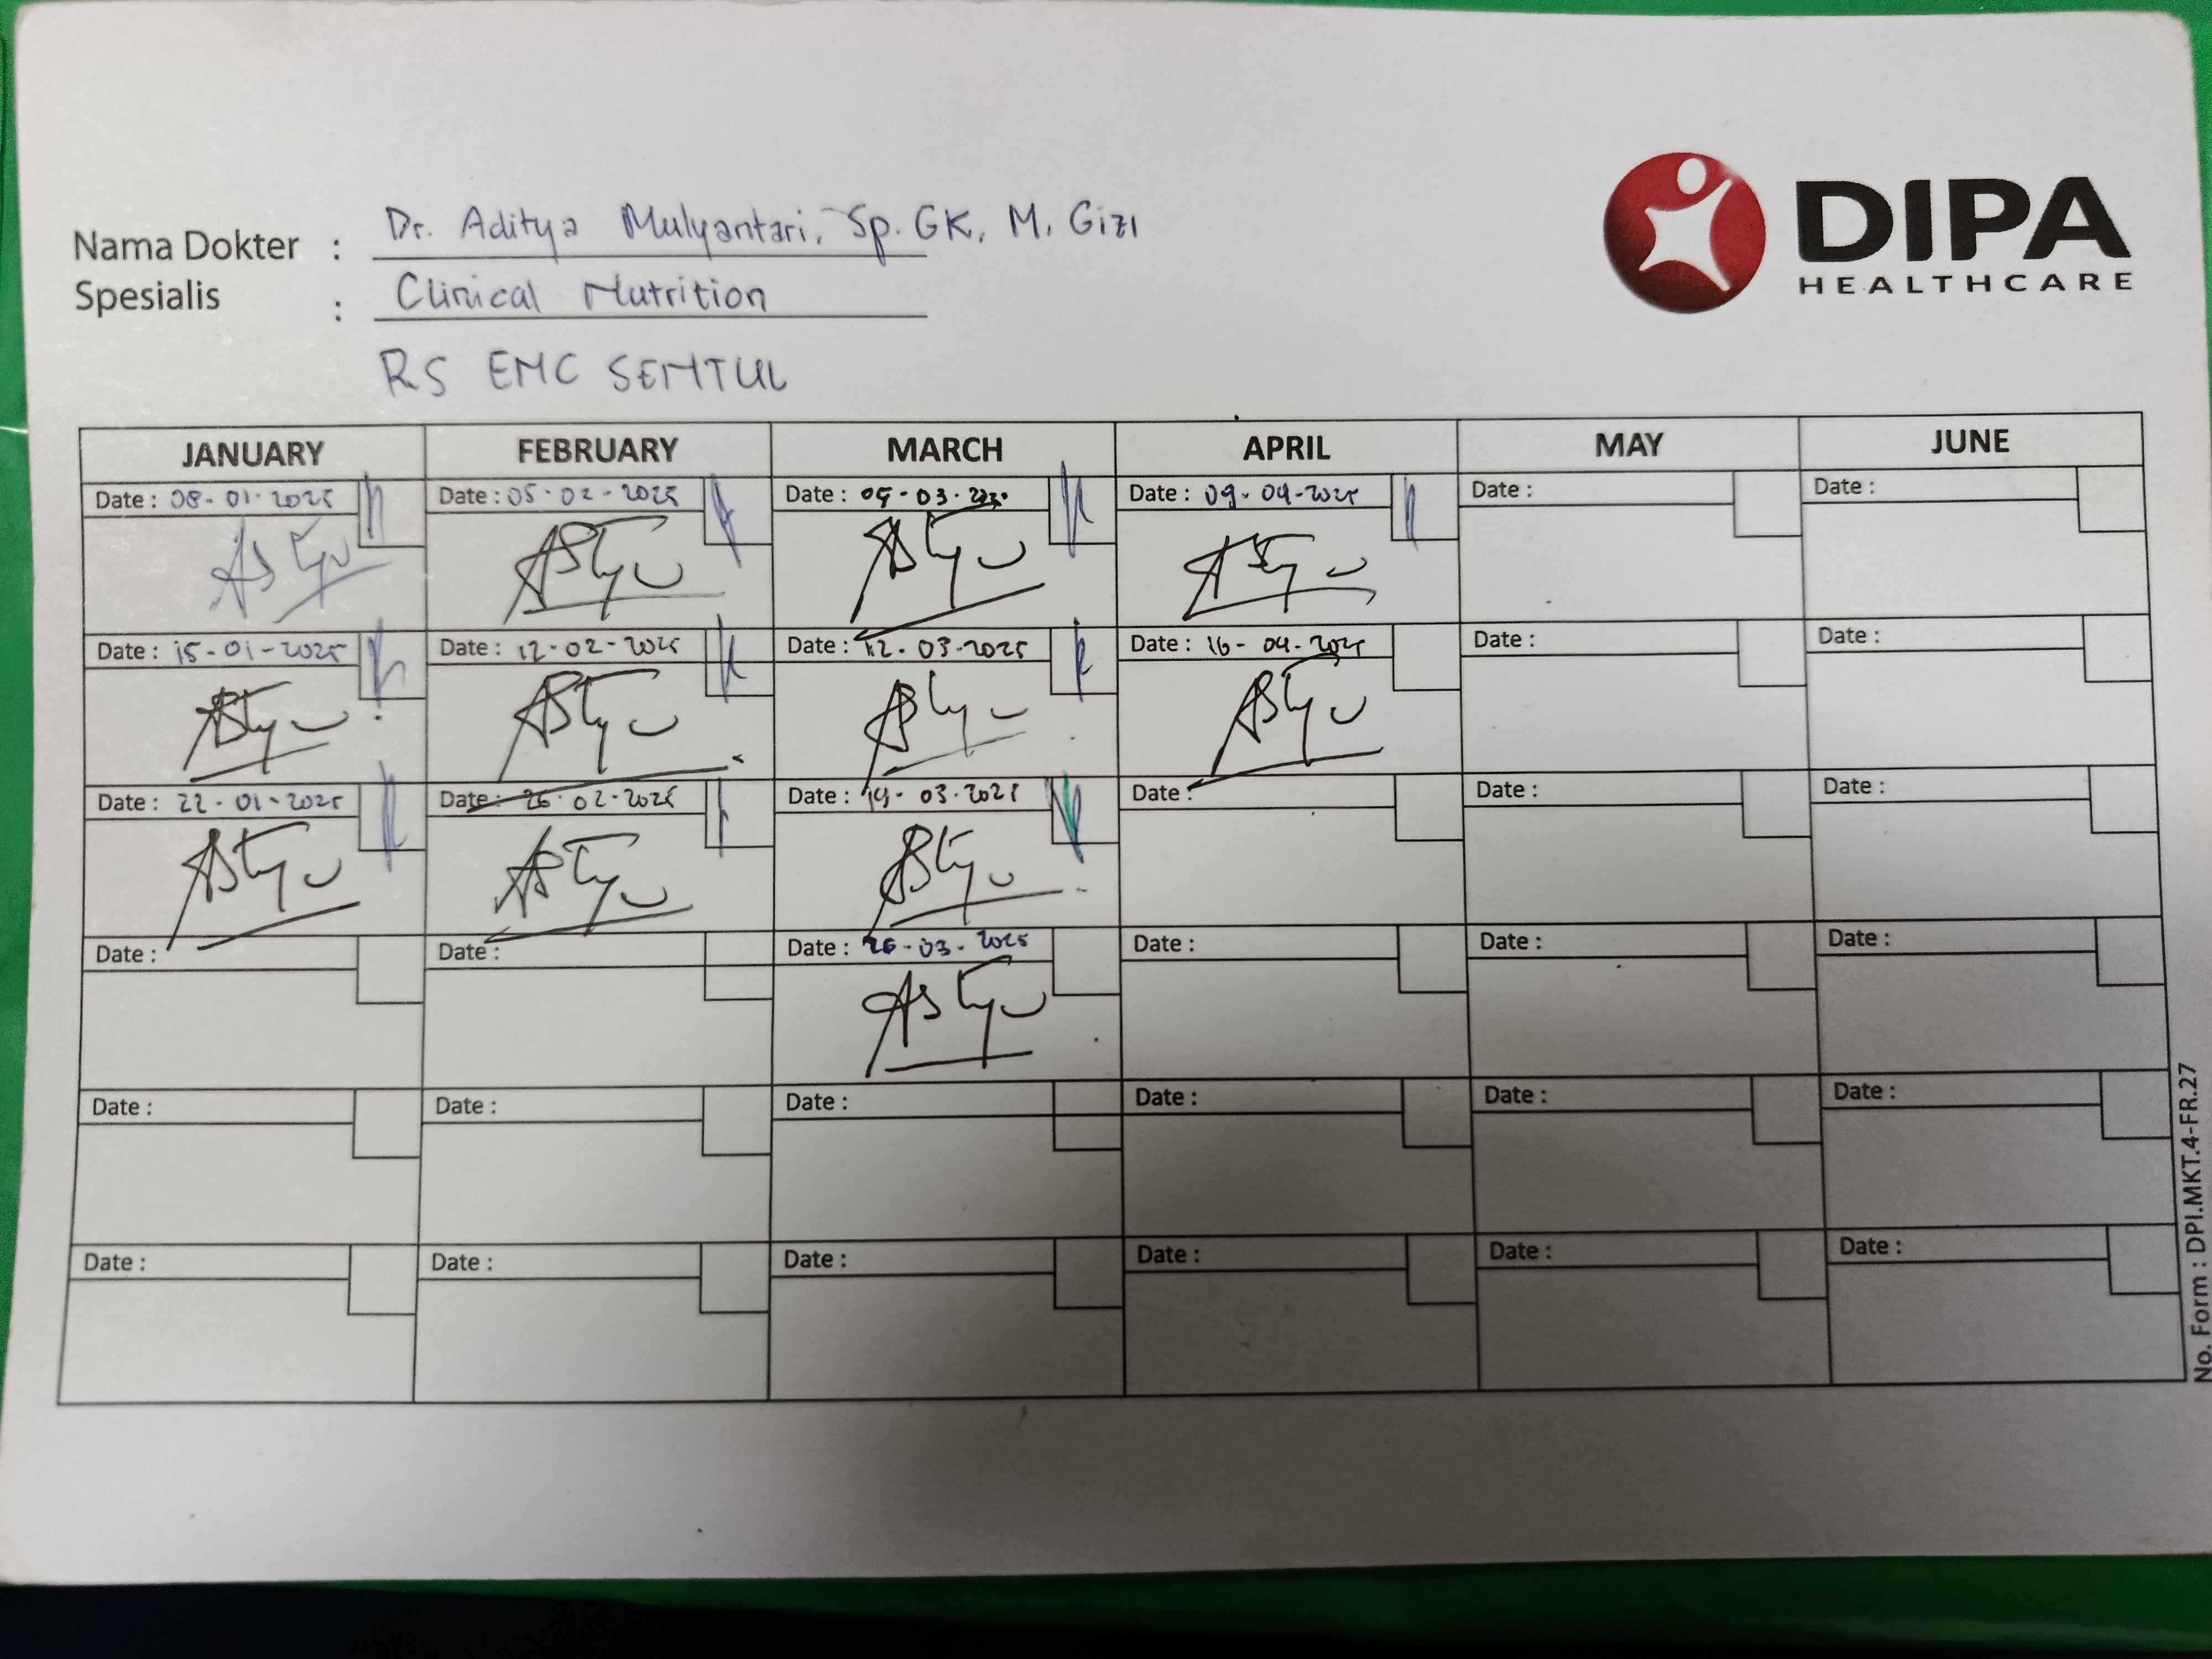 DIPA
HEALTHCARE
Nama Dokter : Dr. Aditya Mulyantari, Sp. GK, M. Gizi
Spesialis : Clinical Nutrition
RS EMC SENTUL
JANUARY FEBRUARY MARCH APRIL MAY JUNE
Date : 08-01-2025 Date : 05-02-2025 Date : 05-03- Date : 09-04-2025 Date : Date :
Date : 15-01-2025 Date : 12-02-2025 Date : 12-03-2025 Date : 16-04-2025 Date : Date :
Date : 22-01-2025 Date : 26-02-2025 Date : 19-03-2025 Date : Date : Date :
Date : Date : Date : 26-03-2025 Date : Date : Date :
Date : Date : Date : Date : Date : Date :
Date : Date : Date : Date : Date : Date :
No. Form : DPI.MKT.4-FR.27